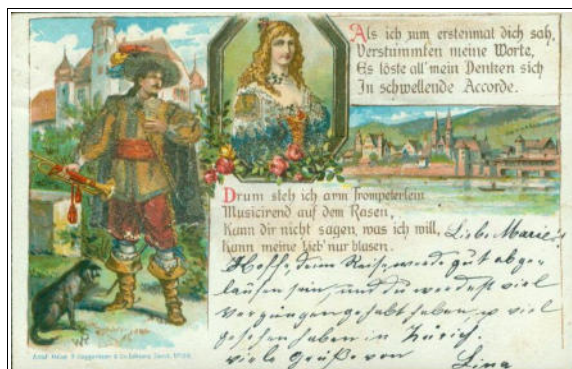 Als ich zum erstenmal dich sah,
Verstummten meine Worte,
Es löste all' mein Denken sich
In schwellende Accorde.
Drum steh ich arm Trompeterlein
Musicirend auf dem Rasen,
Kann dir nicht sagen, was ich will,
Kann meine Lieb' nur blasen.
Liebe Marie!
Hoffe, deine Reise werde gut abge-
laufen sein, und du werdest viel
Vergnügen gehabt haben, u viel
gesehen haben in Zürich.
viele Grüße von Lina